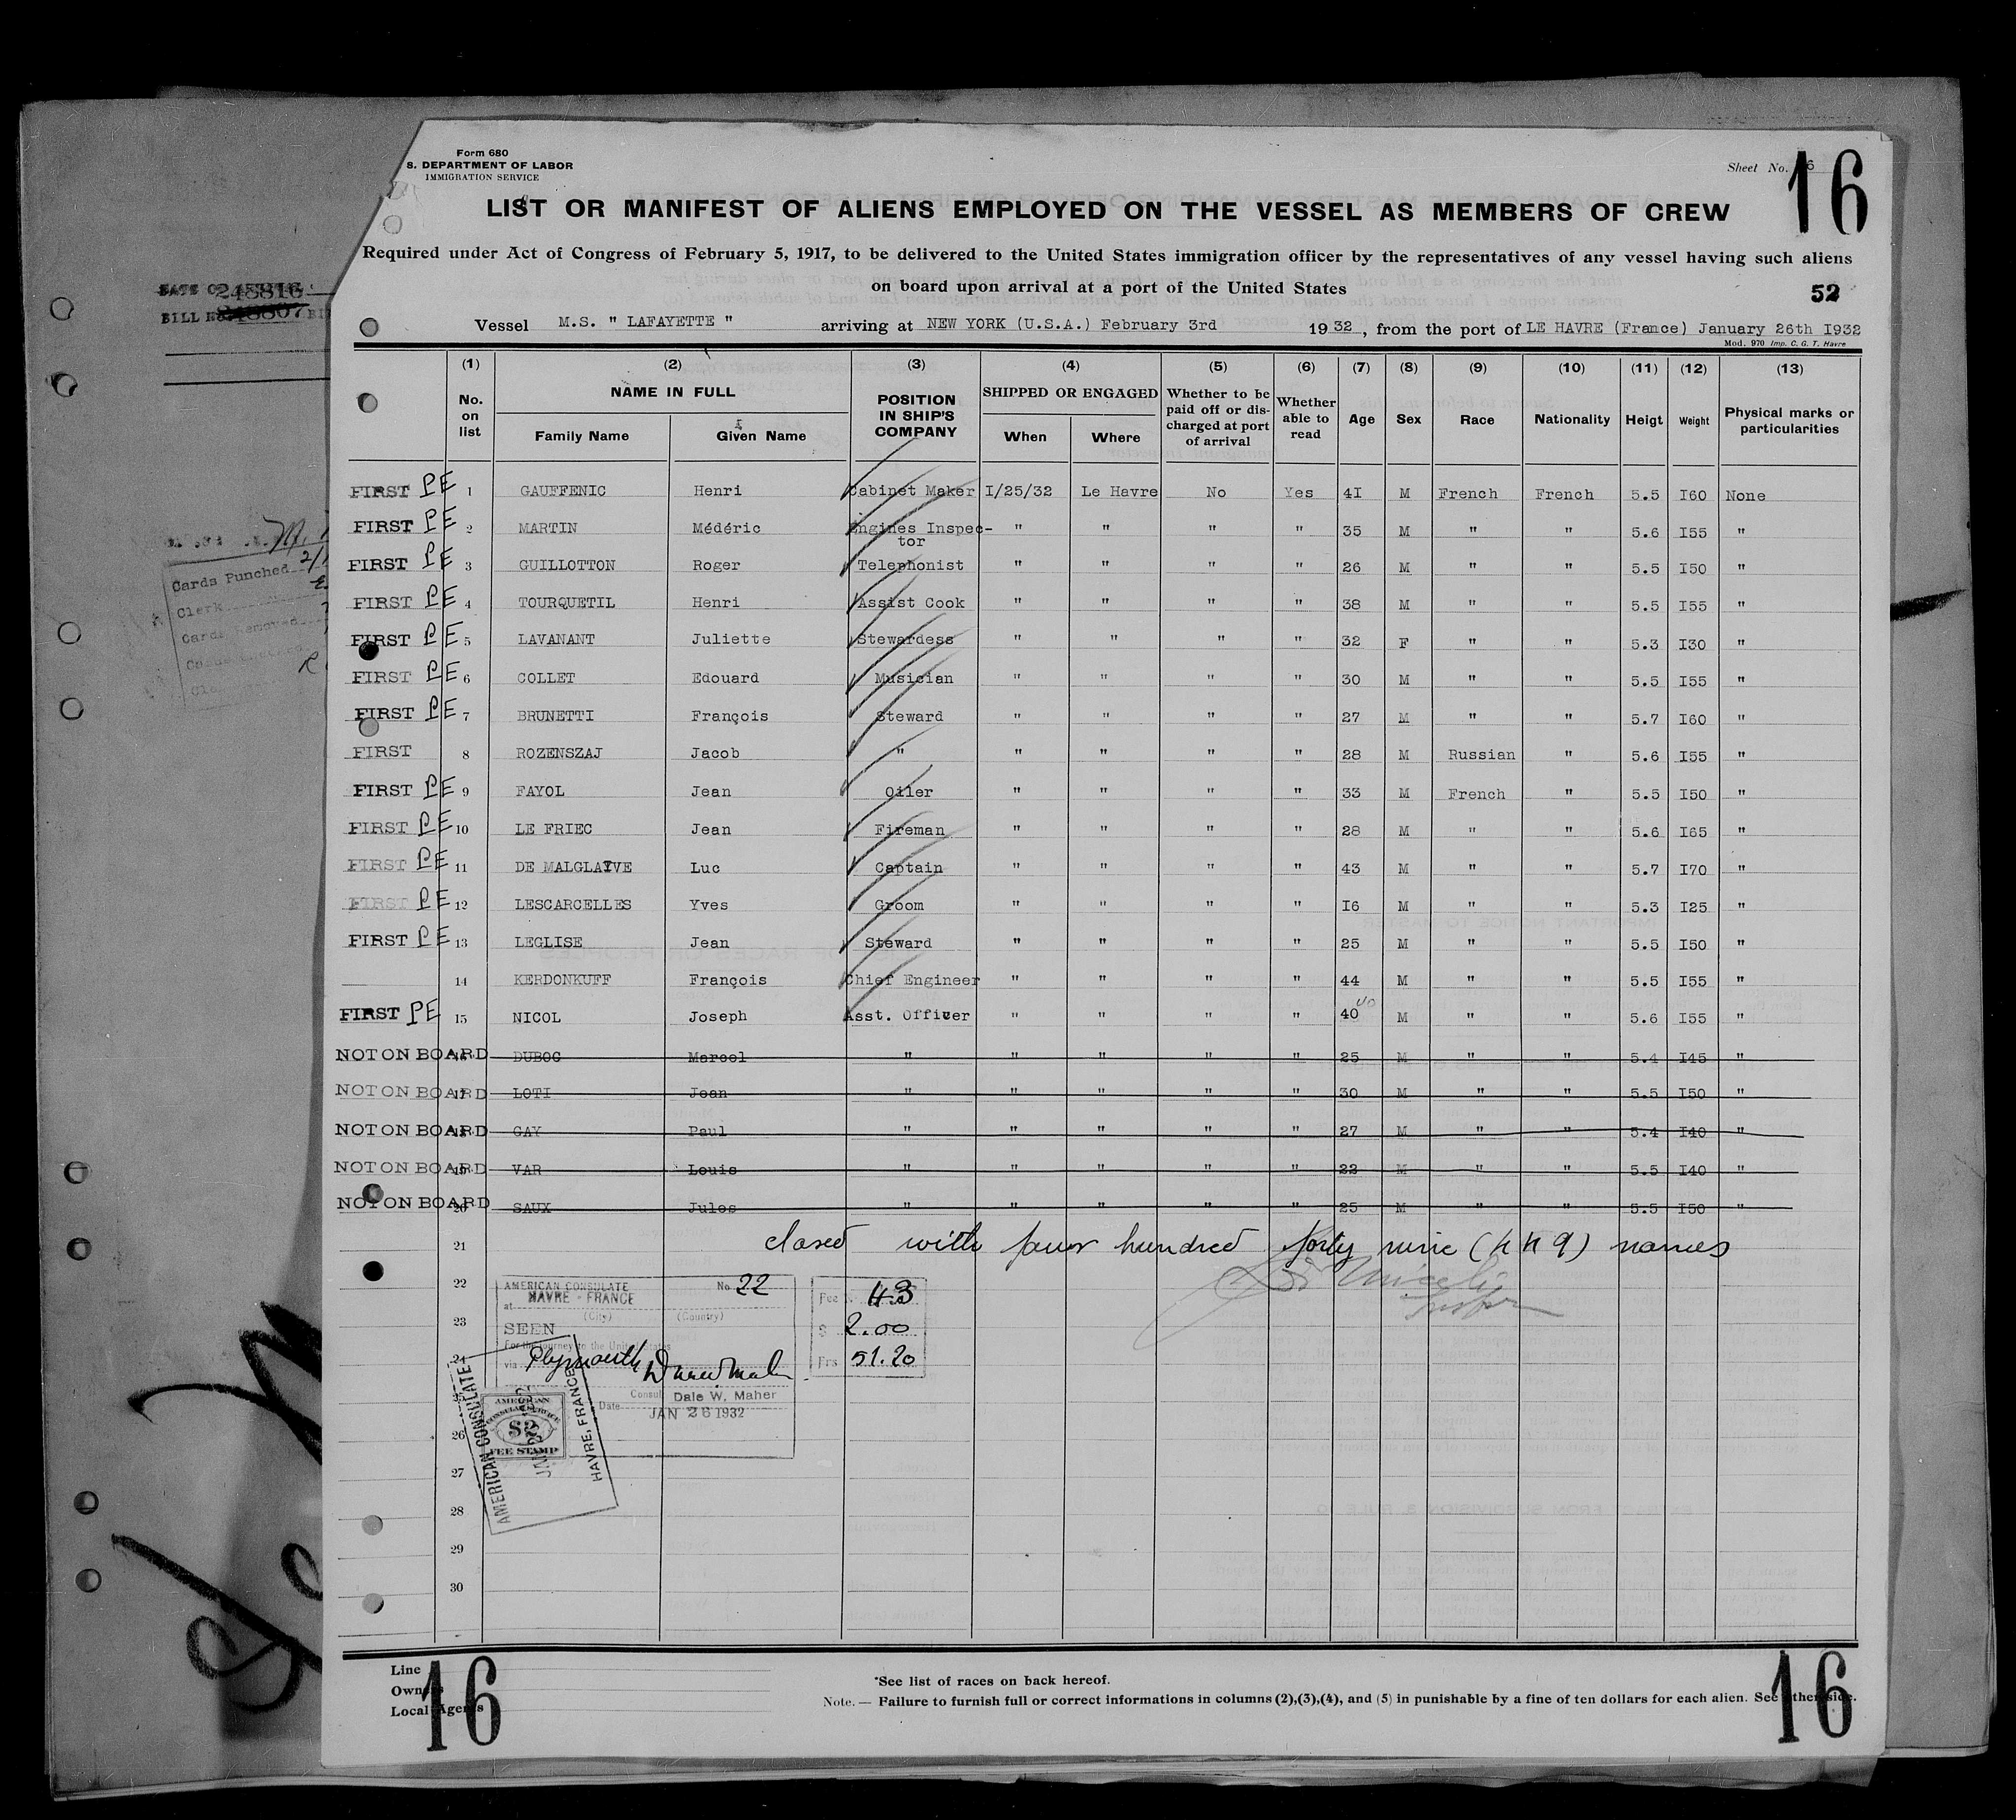 Form 680
S. DEPARTMENT OF LABOR
IMMIGRATION SERVICE
Sheet No. 6
16
LIST OR MANIFEST OF ALIENS EMPLOYED ON THE VESSEL AS MEMBERS OF CREW
Required under Act of Congress of February 5, 1917, to be delivered to the United States immigration officer by the representatives of any vessel having such aliens
on board upon arrival at a port of the United States
52
Vessel M.S. " LAFAYETTE " arriving at NEW YORK (U.S.A.) February 3rd 1932, from the port of LE HAVRE (France) January 26th I932
Mod. 970 Imp. C. G. T. Havre
248816
248807
BILL No.
Cards Punched 2/
Clerk
Cards Removed
(1) (2) (3) (4) (5) (6) (7) (8) (9) (10) (11) (12) (13)
No. on list NAME IN FULL POSITION IN SHIP'S COMPANY SHIPPED OR ENGAGED Whether to be paid off or discharged at port of arrival Whether able to read Age Sex Race Nationality Heigt Weight Physical marks or particularities
Family Name Given Name When Where
FIRST PE 1 GAUFFENIC Henri Cabinet Maker I/25/32 Le Havre No Yes 4I M French French 5.5 I60 None
FIRST PE 2 MARTIN Médéric Engines Inspec- " " " " 35 M " " 5.6 I55 "
tor
FIRST PE 3 GUILLOTTON Roger Telephonist " " " " 26 M " " 5.5 I50 "
FIRST PE 4 TOURQUETIL Henri Assist Cook " " " " 38 M " " 5.5 I55 "
FIRST PE 5 LAVANANT Juliette Stewardess " " " " 32 F " " 5.3 I30 "
FIRST PE 6 COLLET Edouard Musician " " " " 30 M " " 5.5 I55 "
FIRST PE 7 BRUNETTI François Steward " " " " 27 M " " 5.7 I60 "
FIRST 8 ROZENSZAJ Jacob " " " " " 28 M Russian " 5.6 I55 "
FIRST PE 9 FAYOL Jean Oiler " " " " 33 M French " 5.5 I50 "
FIRST PE 10 LE FRIEC Jean Fireman " " " " 28 M " " 5.6 I65 "
FIRST PE 11 DE MALGLAIVE Luc Captain " " " " 43 M " " 5.7 I70 "
FIRST PE 12 LESCARCELLES Yves Groom " " " " I6 M " " 5.3 I25 "
FIRST PE 13 LEGLISE Jean Steward " " " " 25 M " " 5.5 I50 "
14 KERDONKUFF François Chief Engineer " " " " 44 M " " 5.5 I55 "
FIRST PE 15 NICOL Joseph Asst. Officer " " " " 40 40 M " " 5.6 I55 "
NOT ON BOARD 16 DUBOC Marcel " " " " " 25 M " " 5.4 I45 "
NOT ON BOARD 17 LOTI Jean " " " " " 30 M " " 5.5 I50 "
NOT ON BOARD 18 GAY Paul " " " " " 27 M " " 5.4 I40 "
NOT ON BOARD 19 VAR Louis " " " " " 22 M " " 5.5 I40 "
NOT ON BOARD 20 SAUX Jules " " " " " 25 M " " 5.5 I50 "
21 closed with four hundred forty nine (449) names
22 AMERICAN CONSULATE No. 22 Fee No. 43
at HAVRE - FRANCE
(City) (Country)
23 SEEN $ 2.00
For the journey to the United States
24 via Plymouth Frs 51.20
25 Consul Dale W. Maher
Date JAN 26 1932
AMERICAN CONSULATE
HAVRE, FRANCE
AMERICAN
CONSULAR SERVICE
$2
FEE STAMP
26
27
28
29
30
Line
Owners
Local Agents
16
*See list of races on back hereof.
Note. — Failure to furnish full or correct informations in columns (2),(3),(4), and (5) in punishable by a fine of ten dollars for each alien. See other side.
16